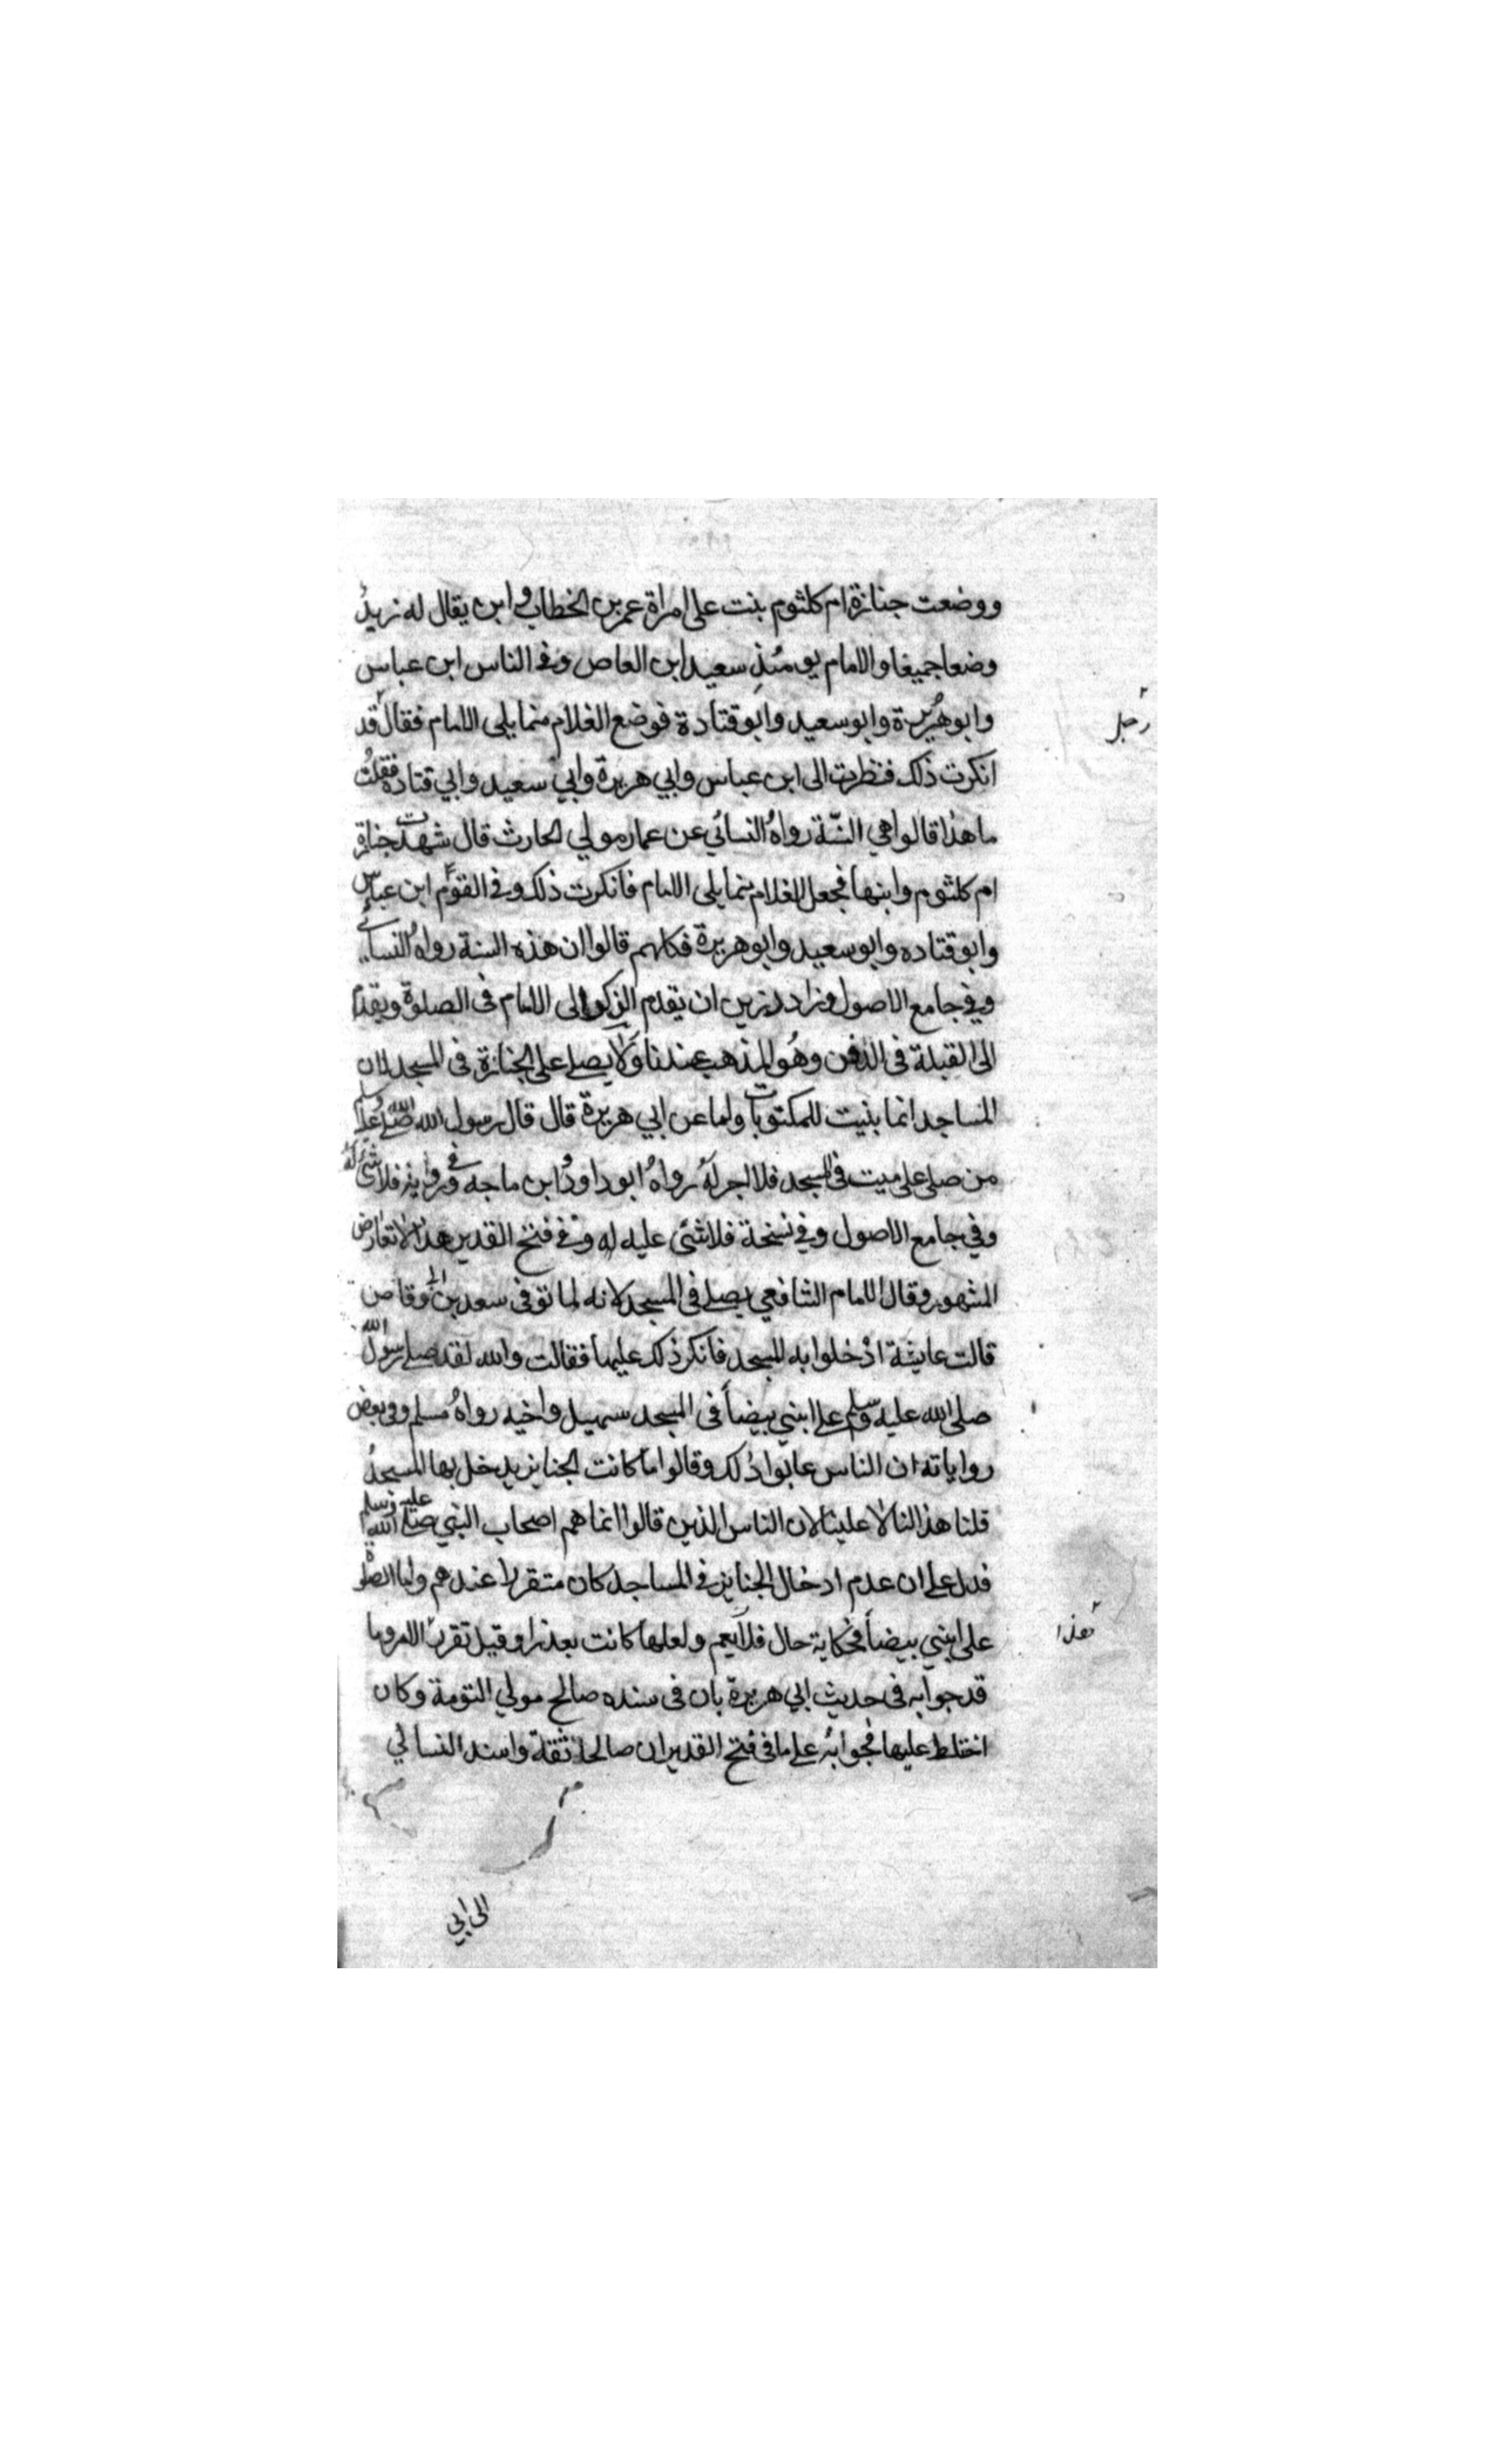 ووضعت جنازة ام كلثوم بنت على امراة عمر بن الخطاب وابن يقال له زيد
وضعا جميعا والامام يومئذ سعيد ابن العاص وفى الناس ابن عباس
وابو هريرة وابو سعيد وابو قتادة فوضع الغلام مما يلى الامام فقال قد
رجل
انكرت ذلك فنظرت الى ابن عباس وابي هريرة وابي سعيد وابي قتاده فقلت
ما هذا قالوا هي السنّة رواه النسائي عن عمار مولي الحارث قال شهدت جنازة
ام كلثوم وابنها فجعل الغلام مما يلى الامام فانكرت ذلك وفى القوم ابن عباس
وابو قتاده وابو سعيد وابو هريرة فكلهم قالوا ان هذه السنة رواه النسائي
وفي جامع الاصول وزاد رزين ان يقدم الذكور الى الامام فى الصلوة ويقدم
الى القبلة فى الدفن وهو المذهب عندنا ولا يصلى على الجنازة فى المسجد لان
المساجد انما بنيت للمكتوبات ولما عن ابي هريرة قال قال رسول الله صلى الله عليه وسلم
من صلى على ميت فى المسجد فلا اجر له رواه ابو داود وابن ماجه وفي رواية فلا شئ له
وفي جامع الاصول وفي نسخة فلا شئ عليه له وفى فتح القدير هذا لا تعارض
المشهور وقال الامام الشافعي يصلى فى المسجد لانه لما توفى سعد بن ابى وقاص
قالت عايشة ادخلوا به المسجد فانكر ذلك عليها فقالت والله لقد صلى رسول الله
صلى الله عليه وسلم على ابني بيضاً فى المسجد سهيل واخيه رواه مسلم وفى بعض
رواياته ان الناس عابوا ذلك وقالوا ما كانت الجنايز يدخل بها المسجد
قلنا هذا لنا لا علينا لان الناس الذين قالوا انما هم اصحاب النبي صلى الله عليه وسلم
فدل على ان عدم ادخال الجنايز فى المساجد كان متقررا عندهم واما الصلوة
على ابني بيضاً فحكاية حال فلا يعم ولعلها كانت بعذر او قيل تقرر الامر وما
قد جوابه فى حديث ابي هريرة بان فى سنده صالح مولي التومة وكان
اختلط عليها فجوابه على ما فى فتح القدير ان صالحا ثقة واسند النسائي
الى ابي